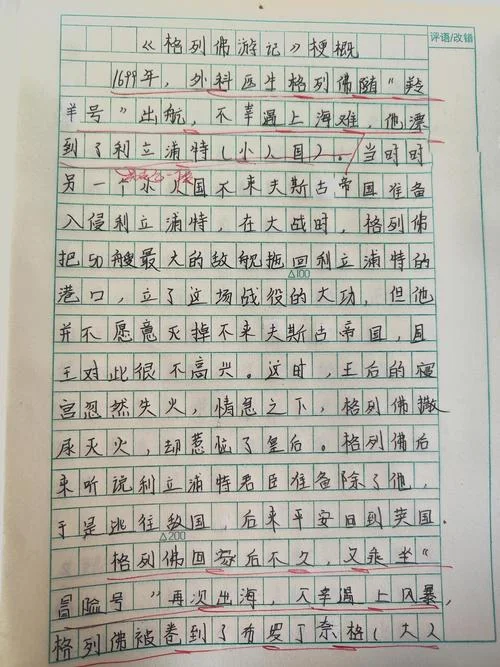 评语/改错
《格列佛游记》梗概
1699年，外科医生格列佛随“羚
羊号”出航，不幸遇上海难，他漂
到了利立浦特（小人国）。当时
另一个小人国不来夫斯古帝国准备
入侵利立浦特，在大战时，格列佛
把50艘最大的敌舰拖回利立浦特的
△100
港口，立了这场战役的大功，但他
并不愿意灭掉不来夫斯古帝国，国
王对此很不高兴。这时，王后的寝
宫忽然失火，情急之下，格列佛撒
尿灭火，却惹恼了皇后。格列佛后
来听说利立浦特君臣准备除了他，
于是逃往敌国，后来平安回到英国.
△200
格列佛回家后不久，又乘坐“
冒险号”再次出海，不幸遇上风暴，
格列佛被卷到了布罗丁奈格（大人